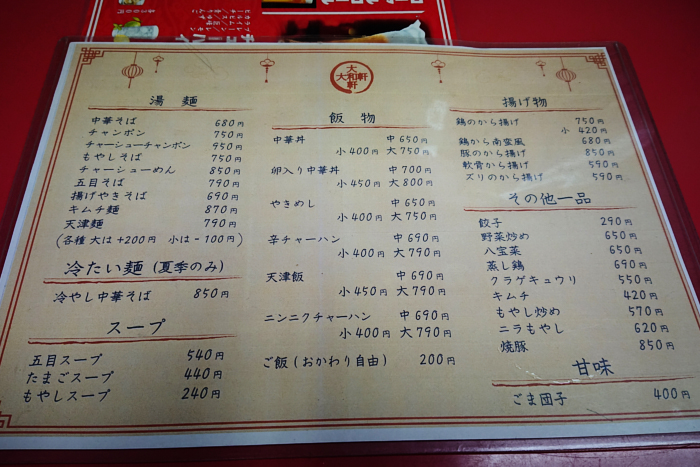 大
大和軒
軒
湯 麺
中華そば 680円
チャンポン 750円
チャーシューチャンポン 950円
もやしそば 750円
チャーシューめん 850円
五目そば 790円
揚げやきそば 690円
キムチ麺 870円
天津麺 790円
(各種 大は+200円 小は-100円)
冷たい麺 (夏季のみ)
冷やし中華そば 850円
スープ
五目スープ 540円
たまごスープ 440円
もやしスープ 240円
飯 物
中華丼 中 650円
小 400円 大 750円
卵入り中華丼 中 700円
小 450円 大 800円
やきめし 中 650円
小 400円 大 750円
辛チャーハン 中 690円
小 400円 大 790円
天津飯 中 690円
小 450円 大 790円
ニンニクチャーハン 中 690円
小 400円 大 790円
ご飯 (おかわり自由) 200円
揚げ物
鶏のから揚げ 750円
小 420円
鶏から南蛮風 680円
豚のから揚げ 850円
軟骨から揚げ 590円
ズリのから揚げ 590円
その他一品
餃子 290円
野菜炒め 650円
八宝菜 650円
蒸し鶏 690円
クラゲキュウリ 550円
キムチ 420円
もやし炒め 570円
ニラもやし 620円
焼豚 850円
甘味
ごま団子 400円